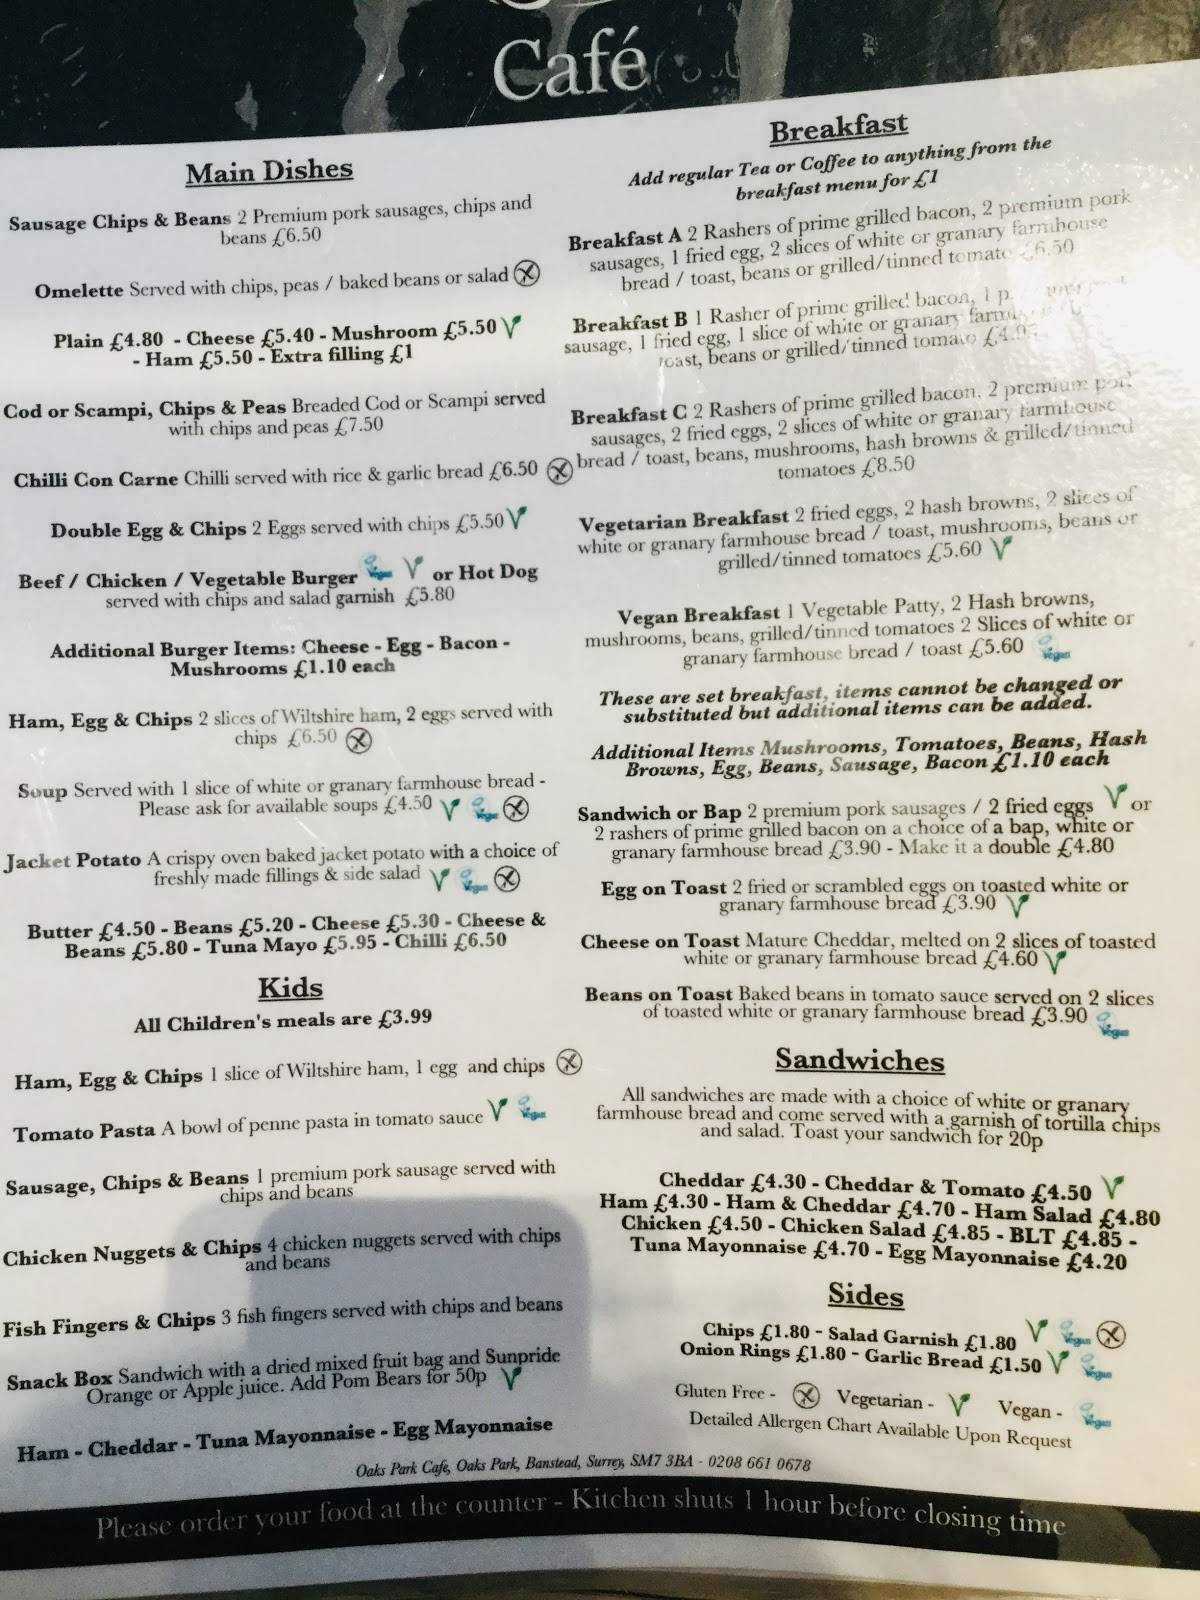 Café
Main Dishes
Sausage Chips & Beans 2 Premium pork sausages, chips and
beans £6.50
Omelette Served with chips, peas / baked beans or salad
Plain £4.80 - Cheese £5.40 - Mushroom £5.50
- Ham £5.50 - Extra filling £1
Cod or Scampi, Chips & Peas Breaded Cod or Scampi served
with chips and peas £7.50
Chilli Con Carne Chilli served with rice & garlic bread £6.50
Double Egg & Chips 2 Eggs served with chips £5.50
Beef / Chicken / Vegetable Burger Vegan or Hot Dog
served with chips and salad garnish £5.80
Additional Burger Items: Cheese - Egg - Bacon -
Mushrooms £1.10 each
Ham, Egg & Chips 2 slices of Wiltshire ham, 2 eggs served with
chips £6.50
Soup Served with 1 slice of white or granary farmhouse bread -
Please ask for available soups £4.50 Vegan
Jacket Potato A crispy oven baked jacket potato with a choice of
freshly made fillings & side salad Vegan
Butter £4.50 - Beans £5.20 - Cheese £5.30 - Cheese &
Beans £5.80 - Tuna Mayo £5.95 - Chilli £6.50
Kids
All Children's meals are £3.99
Ham, Egg & Chips 1 slice of Wiltshire ham, 1 egg and chips
Tomato Pasta A bowl of penne pasta in tomato sauce Vegan
Sausage, Chips & Beans 1 premium pork sausage served with
chips and beans
Chicken Nuggets & Chips 4 chicken nuggets served with chips
and beans
Fish Fingers & Chips 3 fish fingers served with chips and beans
Snack Box Sandwich with a dried mixed fruit bag and Sunpride
Orange or Apple juice. Add Pom Bears for 50p
Ham - Cheddar - Tuna Mayonnaise - Egg Mayonnaise
Breakfast
Add regular Tea or Coffee to anything from the
breakfast menu for £1
Breakfast A 2 Rashers of prime grilled bacon, 2 premium pork
sausages, 1 fried egg, 2 slices of white or granary farmhouse
bread / toast, beans or grilled/tinned tomato £6.50
Breakfast B 1 Rasher of prime grilled bacon, 1
sausage, 1 fried egg, 1 slice of white or granary
toast, beans or grilled/tinned tomato
Breakfast C 2 Rashers of prime grilled bacon, 2 premium pork
sausages, 2 fried eggs, 2 slices of white or granary farmhouse
bread / toast, beans, mushrooms, hash browns & grilled/tinned
tomatoes £8.50
Vegetarian Breakfast 2 fried eggs, 2 hash browns, 2 slices of
white or granary farmhouse bread / toast, mushrooms, beans or
grilled/tinned tomatoes £5.60
Vegan Breakfast 1 Vegetable Patty, 2 Hash browns,
mushrooms, beans, grilled/tinned tomatoes 2 Slices of white or
granary farmhouse bread / toast £5.60 Vegan
These are set breakfast, items cannot be changed or
substituted but additional items can be added.
Additional Items Mushrooms, Tomatoes, Beans, Hash
Browns, Egg, Beans, Sausage, Bacon £1.10 each
Sandwich or Bap 2 premium pork sausages / 2 fried eggs or
2 rashers of prime grilled bacon on a choice of a bap, white or
granary farmhouse bread £3.90 - Make it a double £4.80
Egg on Toast 2 fried or scrambled eggs on toasted white or
granary farmhouse bread £3.90
Cheese on Toast Mature Cheddar, melted on 2 slices of toasted
white or granary farmhouse bread £4.60
Beans on Toast Baked beans in tomato sauce served on 2 slices
of toasted white or granary farmhouse bread £3.90 Vegan
Sandwiches
All sandwiches are made with a choice of white or granary
farmhouse bread and come served with a garnish of tortilla chips
and salad. Toast your sandwich for 20p
Cheddar £4.30 - Cheddar & Tomato £4.50
Ham £4.30 - Ham & Cheddar £4.70 - Ham Salad £4.80
Chicken £4.50 - Chicken Salad £4.85 - BLT £4.85 -
Tuna Mayonnaise £4.70 - Egg Mayonnaise £4.20
Sides
Chips £1.80 - Salad Garnish £1.80 Vegan
Onion Rings £1.80 - Garlic Bread £1.50 Vegan
Gluten Free - Vegetarian - Vegan - Vegan
Detailed Allergen Chart Available Upon Request
Oaks Park Cafe, Oaks Park, Banstead, Surrey, SM7 3BA - 0208 661 0678
Please order your food at the counter - Kitchen shuts 1 hour before closing time